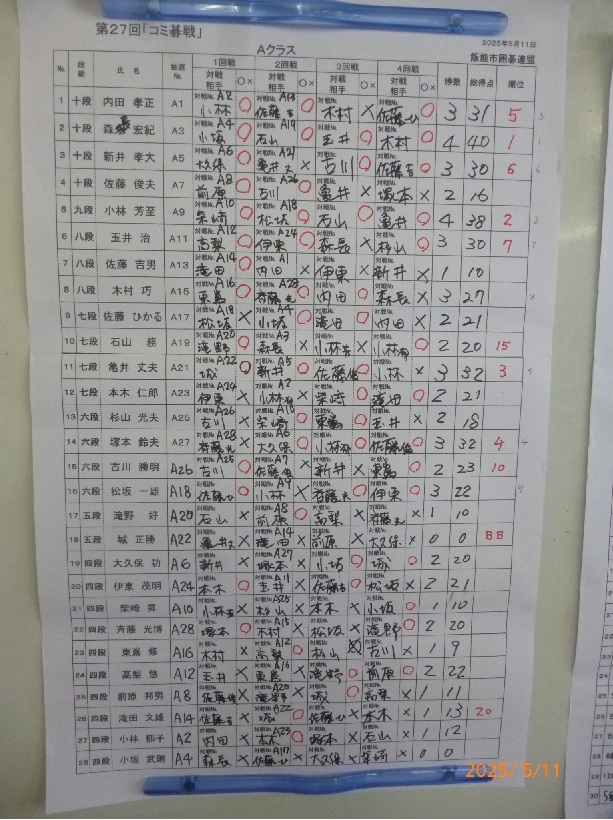 第27回「コミ碁戦」
2025年5月11日
Aクラス
飯能市囲碁連盟
No. 段級 氏名 抽選No 1回戦 2回戦 3回戦 4回戦 勝数 総得点 順位
対戦相手 ○× 対戦相手 ○× 対戦相手 ○× 対戦相手 ○×
1 十段 内田 孝正 A1 A2 小林 ○ 佐藤吉 ○ 木村 × 佐藤ひ ○ 3 31 5
2 十段 森 宏紀 A3 A4 小坂 ○ A19 石山 ○ 玉井 ○ 木村 ○ 4 40 1
3 十段 新井 孝大 A5 A6 大久保 ○ A21 亀井丈 × 古川 ○ 佐藤吉 ○ 3 30 6
4 十段 佐藤 俊夫 A7 A8 前原 ○ A26 古川 ○ 亀井 × 塚本 × 2 16
5 九段 小林 芳至 A9 A10 柴崎 ○ A18 松坂 ○ 石山 ○ 亀井 ○ 4 38 2
6 八段 玉井 治 A11 A12 高梨 ○ A24 伊東 ○ 森長 × 杉山 ○ 3 30 7
7 八段 佐藤 吉男 A13 A14 滝田 ○ A1 内田 × 伊東 × 新井 × 1 10
8 八段 木村 巧 A15 A16 東嶌 ○ A28 斉藤光 ○ 内田 ○ 森長 × 3 27
9 七段 佐藤 ひかる A17 A18 松坂 × A4 小坂 ○ 滝田 ○ 内田 × 2 21
10 七段 石山 務 A19 A20 滝野 ○ A3 森長 × 小林 × 小林 ○ 2 20 15
11 七段 亀井 丈夫 A21 A22 城 ○ A5 新井 ○ 佐藤俊 ○ 小林 × 3 32 3
12 七段 本木 仁郎 A23 A24 伊東 × A2 小林 × 柴崎 ○ 滝田 ○ 2 21
13 六段 杉山 光夫 A25 A26 古川 × A10 柴崎 ○ 東嶌 ○ 玉井 × 2 18
14 六段 塚本 鈴夫 A27 A28 斉藤光 × A6 大久保 ○ 小林 ○ 佐藤俊 ○ 3 32 4
15 六段 古川 勝明 A26 A25 ○ A7 佐藤俊 × 新井 × 東嶌 ○ 2 23 10
16 六段 松坂 一雄 A18 佐藤ひ ○ A9 小林 × 斉藤光 ○ 伊東 ○ 3 22
17 五段 滝野 好 A20 石山 × A8 前原 ○ 高梨 × 斉藤光 × 1 10
18 五段 城 正勝 A22 亀井丈 × A14 滝田 × 前原 × 大久保 × 0 0 BB
19 四段 大久保 功 A6 新井 × A27 塚本 × 小坂 ○ 城 ○ 2 20
20 四段 伊東 茂明 A24 本木 ○ A11 玉井 × 佐藤吉 ○ 松坂 × 2 21
21 四段 柴崎 昇 A10 小林 × A25 杉山 × 本木 × 小坂 ○ 1 10
22 四段 斉藤 光博 A28 塚本 ○ A15 木村 × 松坂 × 滝野 ○ 2 20
23 四段 東嶌 修 A16 木村 × A12 高梨 ○ 杉山 古川 × 1 9
24 四段 高梨 悠 A12 玉井 × A16 東嶌 × 滝野 ○ 前原 ○ 2 22
25 四段 前原 邦男 A8 佐藤俊 × A20 滝野 × 城 ○ 高梨 × 1 11
26 四段 滝田 文雄 A14 佐藤吉 × A22 城 ○ 佐藤ひ × 本木 × 1 13 20
27 四段 小林 郁子 A2 内田 × A23 本木 ○ 塚本 × 石山 × 1 12
28 四段 小坂 武剛 A4 森長 × A17 佐藤ひ × 大久保 × 柴崎 × 0 0
2025/ 5/11